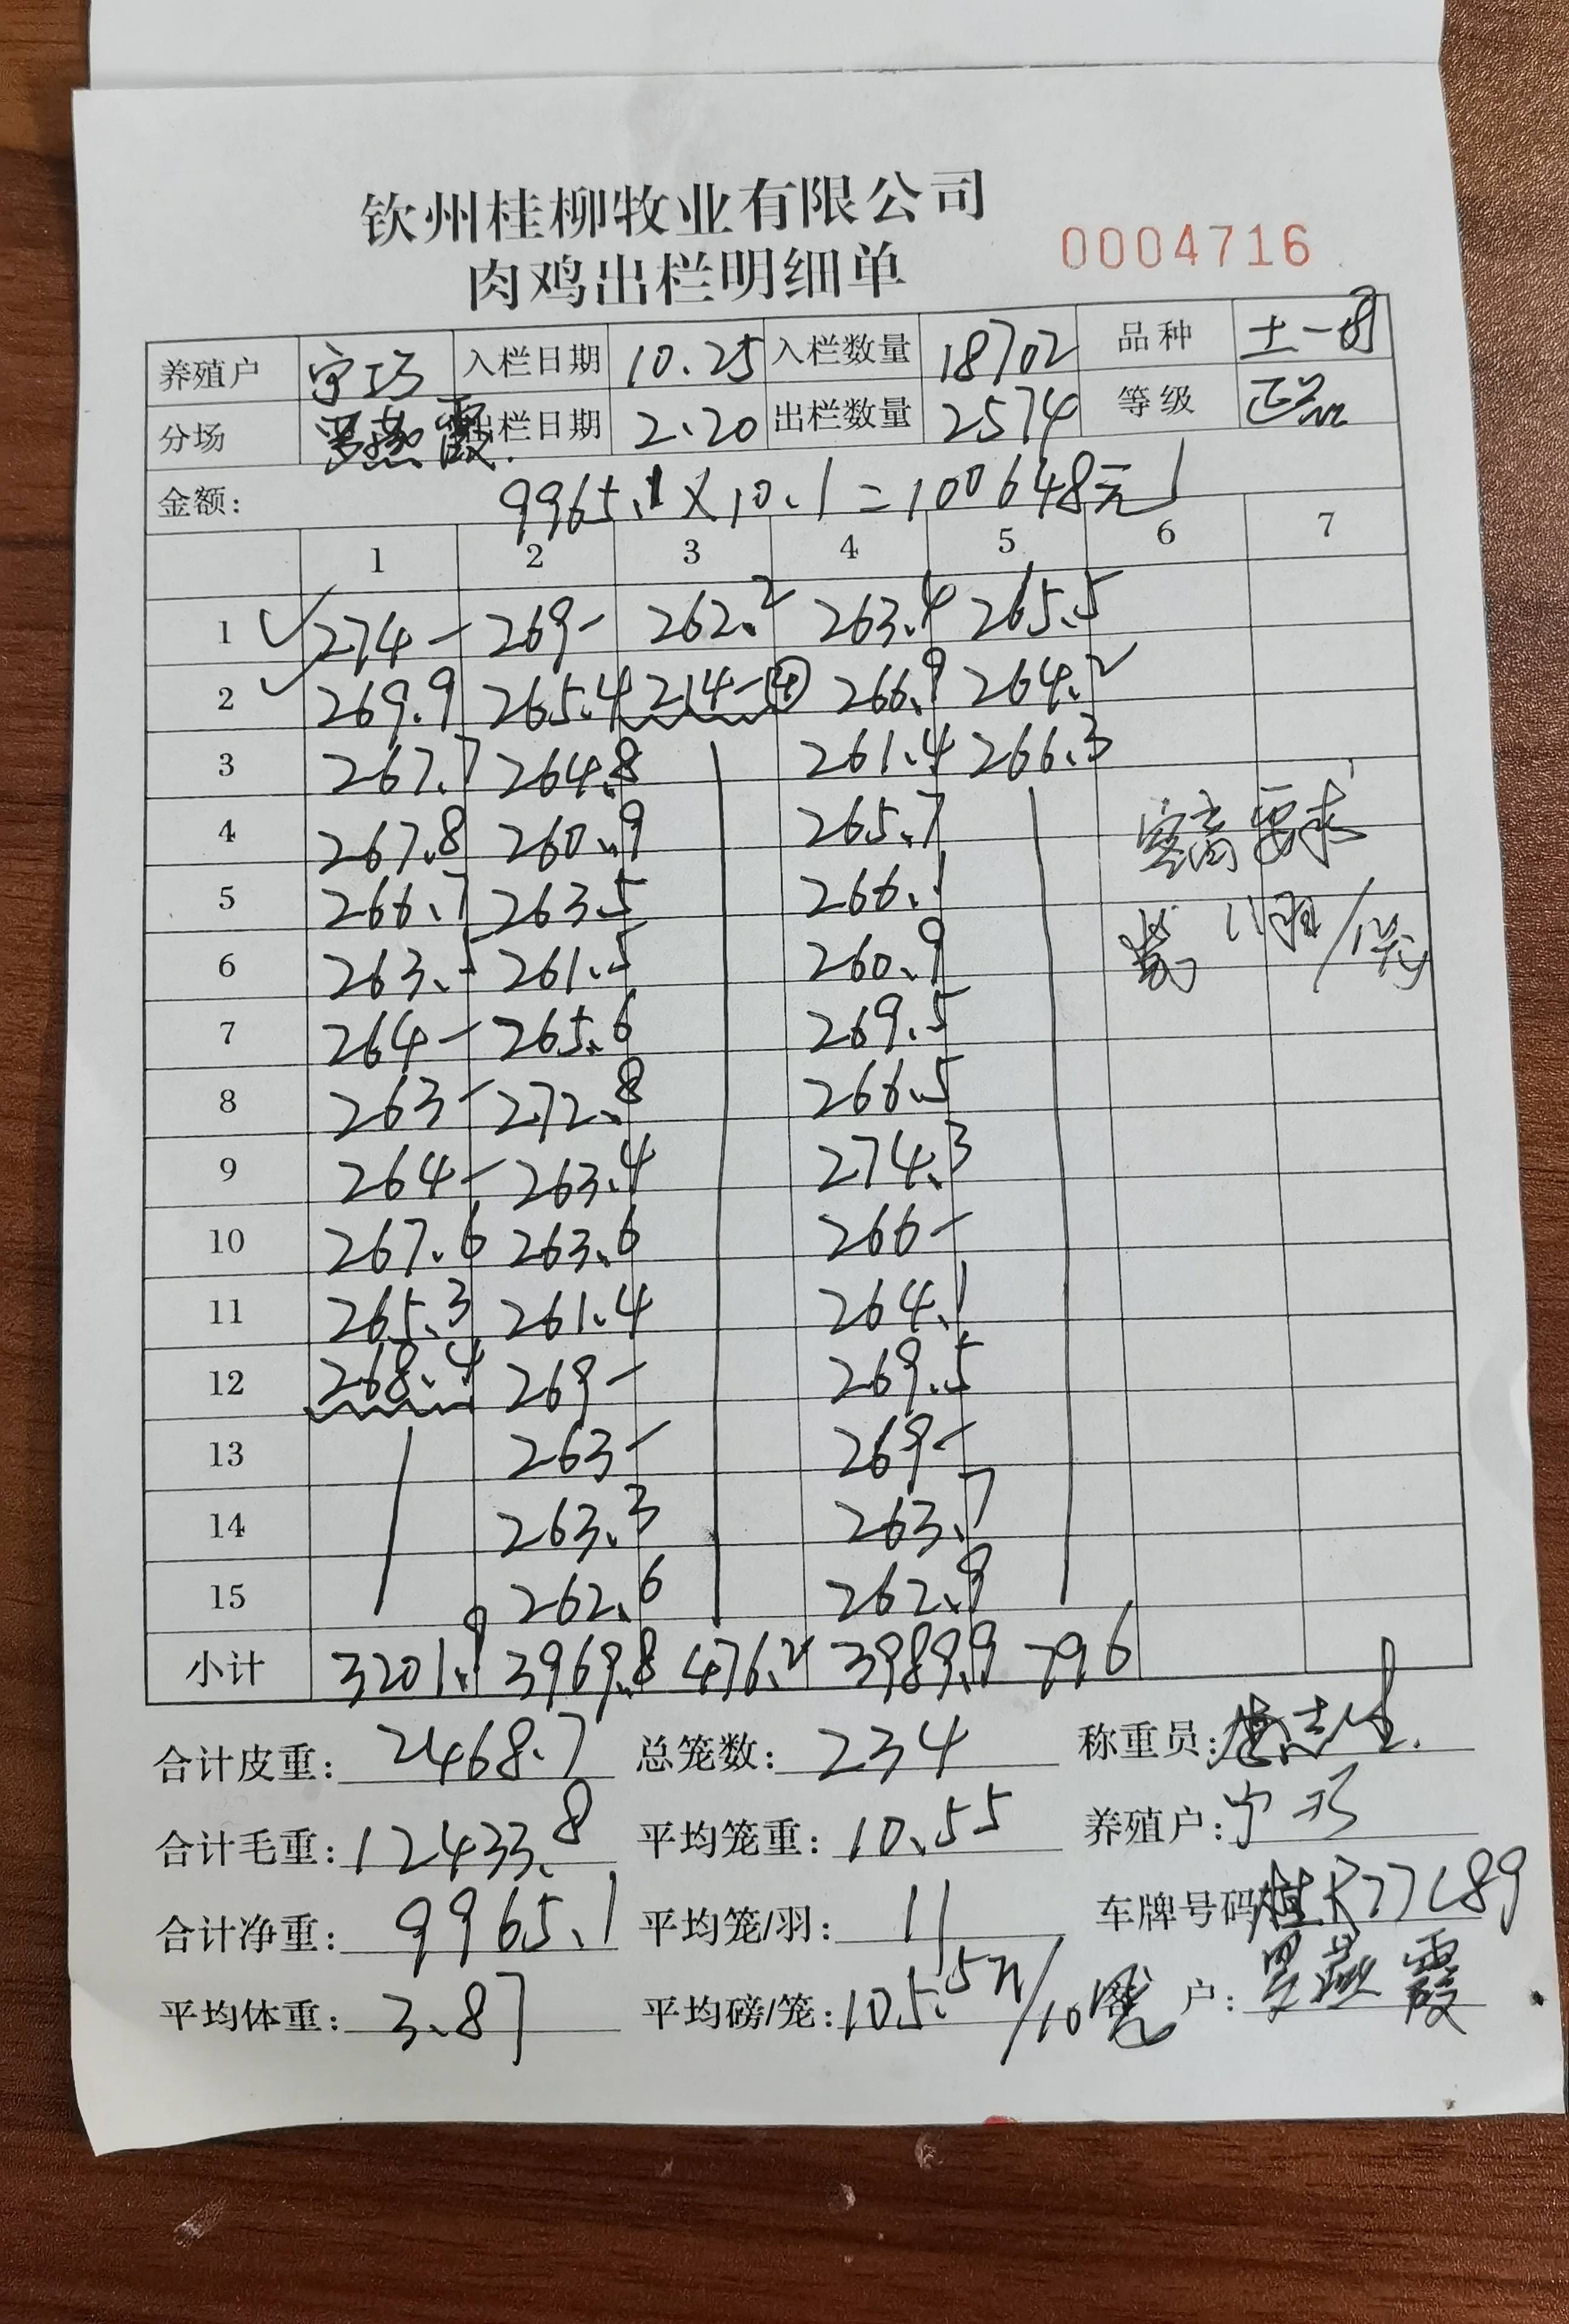 钦州桂柳牧业有限公司
肉鸡出栏明细单
0004716
养殖户 宁巧 入栏日期 10.25 入栏数量 18702 品种 土一
分场 罗燕霞 出栏日期 2.20 出栏数量 2574 等级 正品
金额: 9965.1×10.1=100648元
1 2 3 4 5 6 7
1 274- 269- 262.2 263.4 265.5
2 269.9 265.4 214-④ 266.9 264.2
3 267.7 264.8 261.4 266.3
4 267.8 260.9 265.7 客商要求
5 266.7 263.5 266.1
6 263.5 261.5 260.9 装11羽/笼
7 264- 265.6 269.5
8 263- 272.8 266.5
9 264- 263.4 274.3
10 267.6 263.6 266-
11 265.3 261.4 264.1
12 268.4 269- 269.5
13 263- 269-
14 263.3 263.7
15 262.6 262.9
小计 3201.9 3969.8 476.2 3989.9 796
合计皮重: 2468.7 总笼数: 234 称重员:
合计毛重: 12433.8 平均笼重: 10.55 养殖户: 宁巧
合计净重: 9965.1 平均笼/羽: 11 车牌号码 桂R77C89
平均体重: 3.87 平均磅/笼: 105.5斤/10笼 户: 罗燕霞